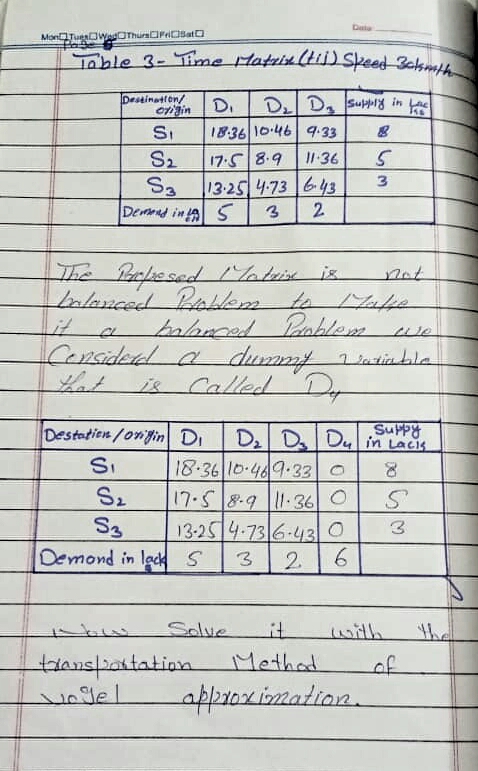 Mon Tues Wed Thurs Fri Sat
Date
Page 8
Table 3- Time Matrix (tij) Speed 30kmph
Destination/ origin D1 D2 D3 Supply in Lac
S1 18.36 10.46 9.33 8
S2 17.5 8.9 11.36 5
S3 13.25 4.73 6.43 3
Demand in 5 3 2
The Propesed Matrix is not
balanced Problem to Make
it a balanced Problem we
Considerd a dummy variable
that is Called D4
Destation/origin D1 D2 D3 D4 Suppy in Lacks
S1 18.36 10.46 9.33 0 8
S2 17.5 8.9 11.36 0 5
S3 13.25 4.73 6.43 0 3
Demond in lack 5 3 2 6
Now Solve it with the
transportation Method of
vogel approximation.